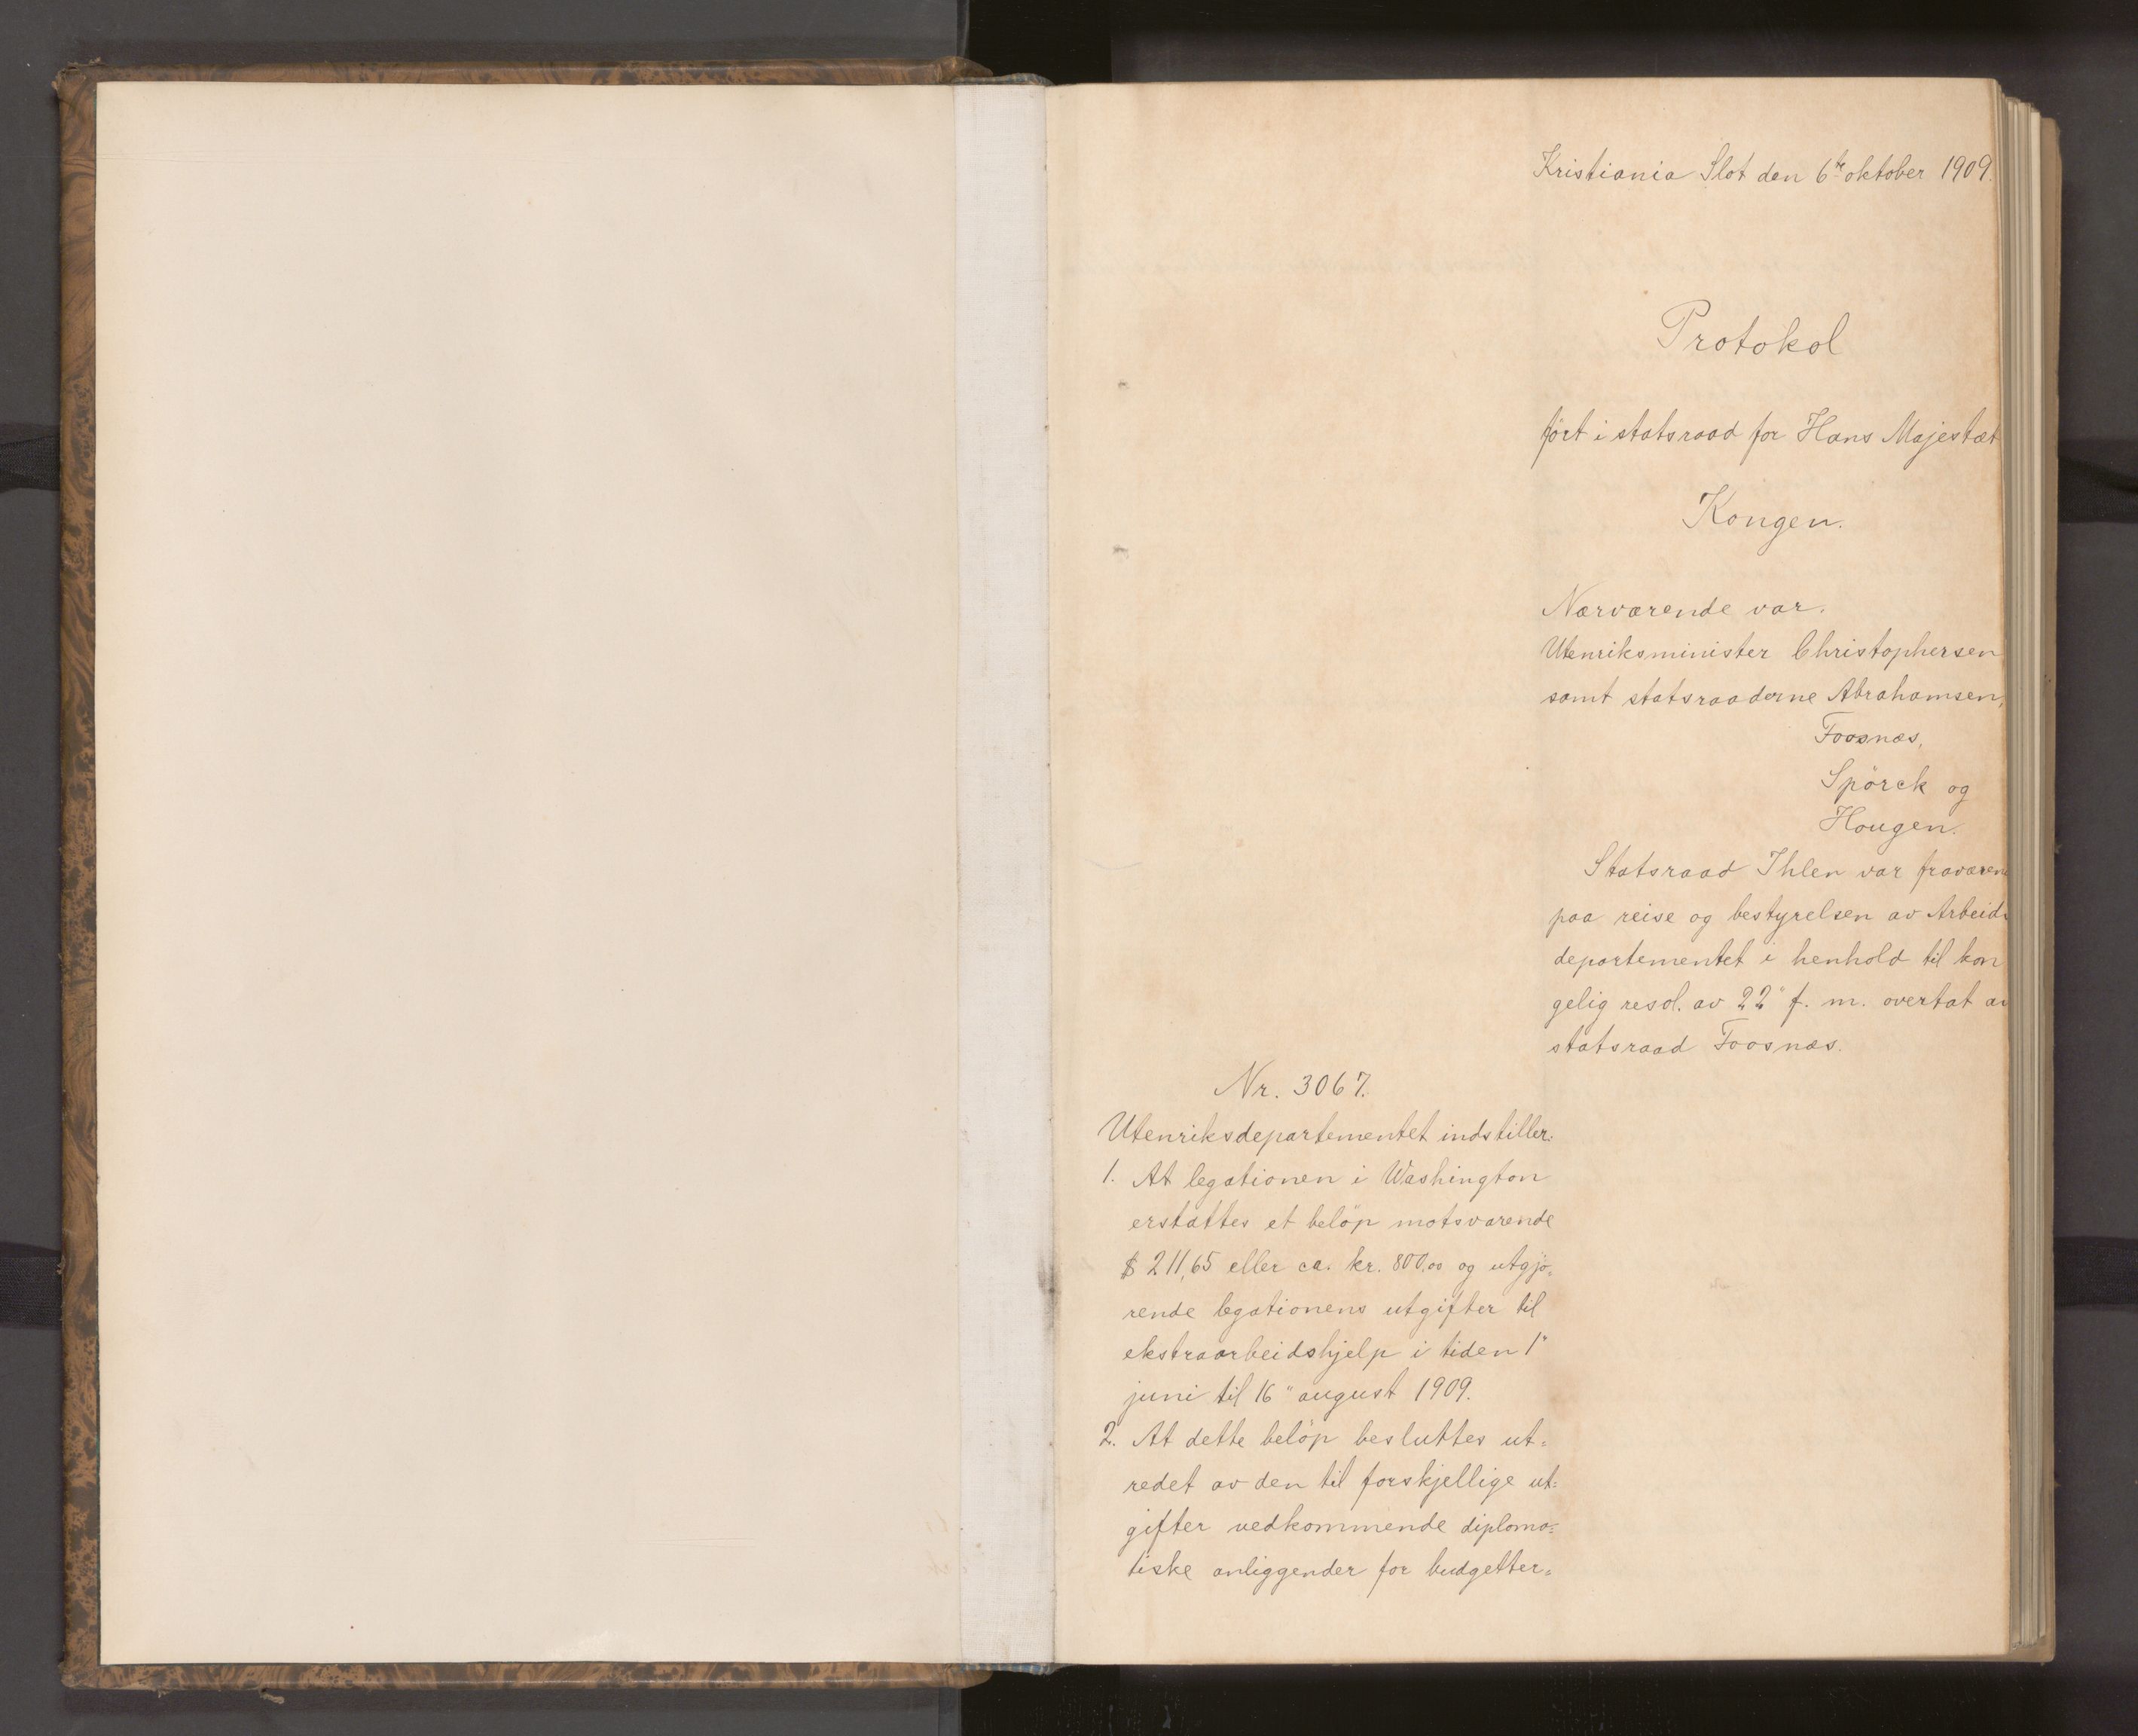 Kristiania Slot den 6te oktober 1909.
Protokol
ført i statsraad for Hans Majestæt
Kongen.
Nærværende var.
Utenriksminister Christophersen
samt statsraaderne Abrahamsen,
Foosnæs,
Spörck og
Hougen.
Statsraad Ihlen var fraværen
paa reise og bestyrelsen av Arbeids
departementet i henhold til kon
gelig resol. av 22" f. m. overtat av
statsraad Foosnæs.
Nr. 3067.
Utenriksdepartementet indstiller:
1. At legationen i Washington
erstattes et beløp motsvarende
$ 211,65 eller ca. kr. 800,00 og utgjö=
rende legationens utgifter til
ekstraarbeidshjelp i tiden 1"
juni til 16" august 1909.
2. At dette beløp besluttes ut=
redet av den til forskjellige ut=
gifter vedkommende diploma=
tiske anliggender for budgetter=